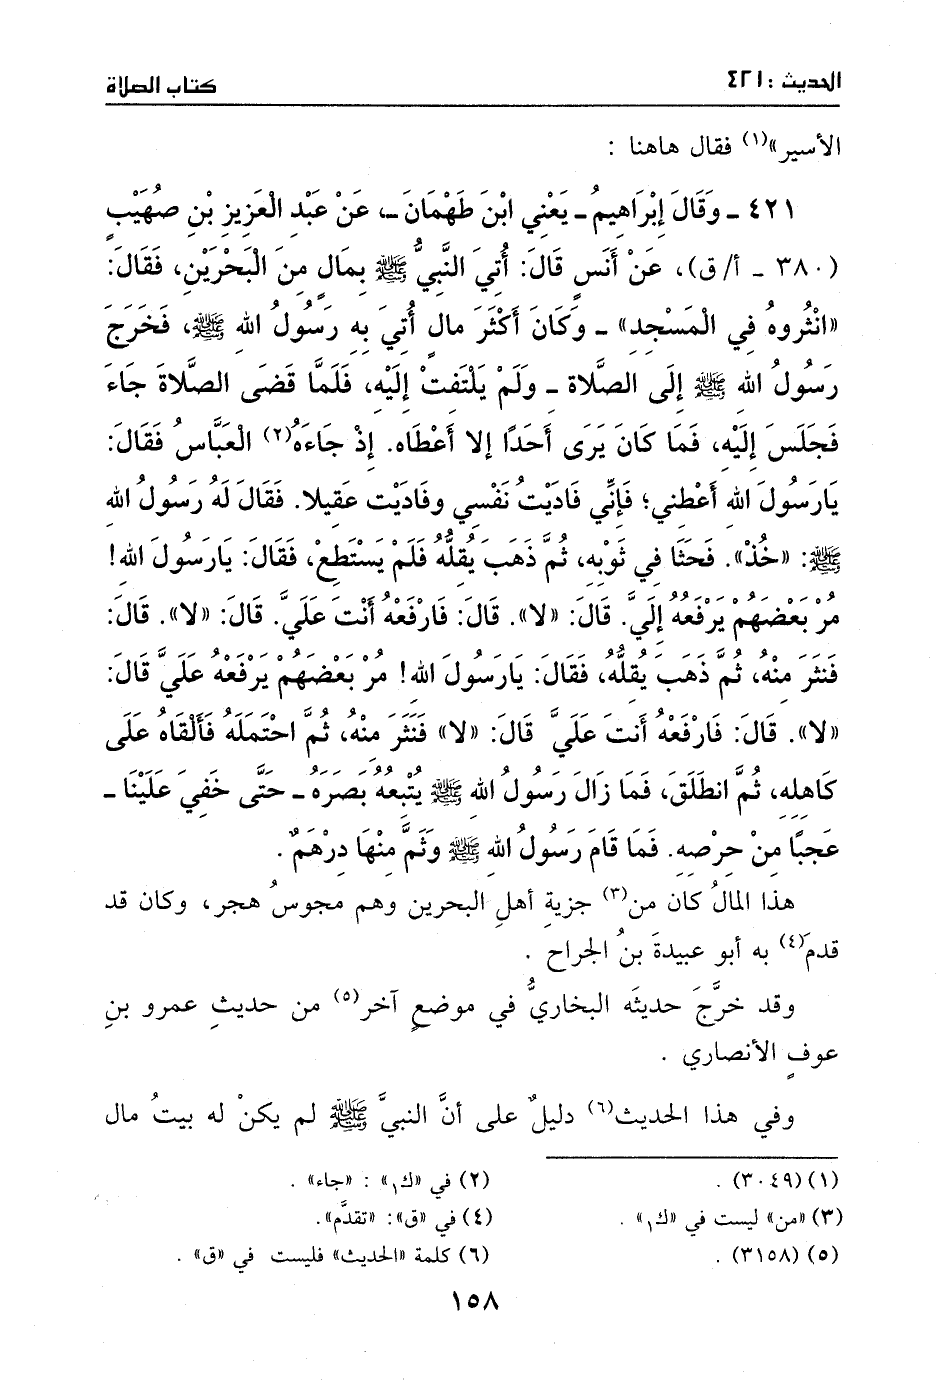 الحديث : ٤٢١
كتاب الصلاة
الأسير»(١) فقال هاهنا :
٤٢١ ـ وَقَالَ إِبْرَاهِيمُ ـ يَعْنِي ابْنَ طَهْمَانَ ـ، عَنْ عَبْدِ الْعَزِيزِ بْنِ صُهَيْبٍ
(٣٨٠ ـ أ/ ق)، عَنْ أَنَسٍ قَالَ: أُتِيَ النَّبِيُّ ﷺ بِمَالٍ مِنَ الْبَحْرَيْنِ، فَقَالَ:
«انْثُروهُ فِي الْمَسْجِدِ» ـ وَكَانَ أَكْثَرَ مالٍ أُتِيَ بِهِ رَسُولُ اللهِ ﷺ، فَخَرَجَ
رَسُولُ اللهِ ﷺ إِلَى الصَّلاةِ ـ وَلَمْ يَلْتَفِتْ إِلَيْهِ، فَلَمَّا قَضَى الصَّلاةَ جَاءَ
فَجَلَسَ إِلَيْهِ، فَمَا كَانَ يَرَى أَحَدًا إِلا أَعْطَاه. إِذْ جَاءَهُ(٢) الْعَبَّاسُ فَقَالَ:
يَارَسُولَ اللهِ أَعْطِني؛ فَإِنِّي فَادَيْتُ نَفْسِي وفَادَيْت عَقِيلا. فَقَالَ لَهُ رَسُولُ اللهِ
ﷺ: «خُذْ». فَحَثَا فِي ثَوْبِهِ، ثُمَّ ذَهَبَ يُقلُّهُ فَلَمْ يَسْتَطِعْ، فَقَالَ: يَارَسُولَ اللهِ!
مُرْ بَعْضَهُمْ يَرْفَعُهُ إِلَيَّ. قَالَ: «لا». قَالَ: فَارْفَعْهُ أَنْتَ عَلَيَّ. قَالَ: «لا». قَالَ:
فَنَثَرَ مِنْهُ، ثُمَّ ذَهَبَ يُقلُّهُ، فَقَالَ: يَارَسُولَ اللهِ! مُرْ بَعضَهُمْ يَرْفَعْهُ عَلَيَّ قَالَ:
«لا». قَالَ: فَارْفَعْهُ أَنتَ عَلَيَّ قَالَ: «لا» فَنَثَرَ مِنْهُ، ثُمَّ احْتَمَلَهُ فَأَلْقَاهُ عَلَى
كَاهِلِهِ، ثُمَّ انطَلَقَ، فَمَا زَالَ رَسُولُ اللهِ ﷺ يُتْبِعُهُ بَصَرَهُ ـ حَتَّى خَفِيَ عَلَيْنَا ـ
عَجَبًا مِنْ حِرْصِهِ. فَمَا قَامَ رَسُولُ اللهِ ﷺ وَثَمَّ مِنْهَا دِرْهَمٌ .
هذا المالُ كان من(٣) جزيةِ أهلِ البحرين وهم مجوسُ هجر، وكان قد
قدمَ(٤) به أبو عبيدةَ بنُ الجراح .
وقد خرَّجَ حديثَه البخاريُّ في موضعٍ آخر(٥) من حديثِ عمرو بنِ
عوفٍ الأنصاري .
وفي هذا الحديث(٦) دليلٌ على أنَّ النبيَّ ﷺ لم يكنْ له بيتُ مال
(١) (٣٠٤٩) .
(٢) في «ك١» : «جاء» .
(٣) «من» ليست في «ك١» .
(٤) في «ق»: «تقدَّم».
(٥) (٣١٥٨) .
(٦) كلمة «الحديث» فليست في «ق» .
١٥٨